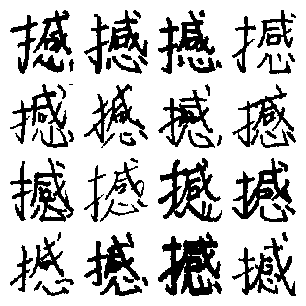 撼撼撼撼
撼撼撼撼
撼撼撼撼
撼撼撼撼